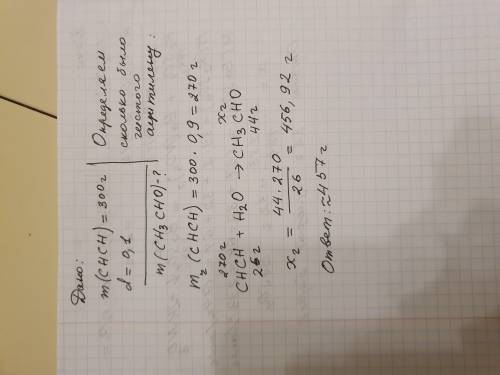 Дано:
m(CHCH) = 300г
d = 0,1
m(CH3CHO)-?
Определяем
сколько было
чистого
ацетилену:
m2 (CHCH) = 300 · 0,9 = 270 г
270г x2
CHCH + H2O → CH3CHO
26г 44г
x2 = 44·270 / 26 = 456,92 г
Ответ: ≈457г